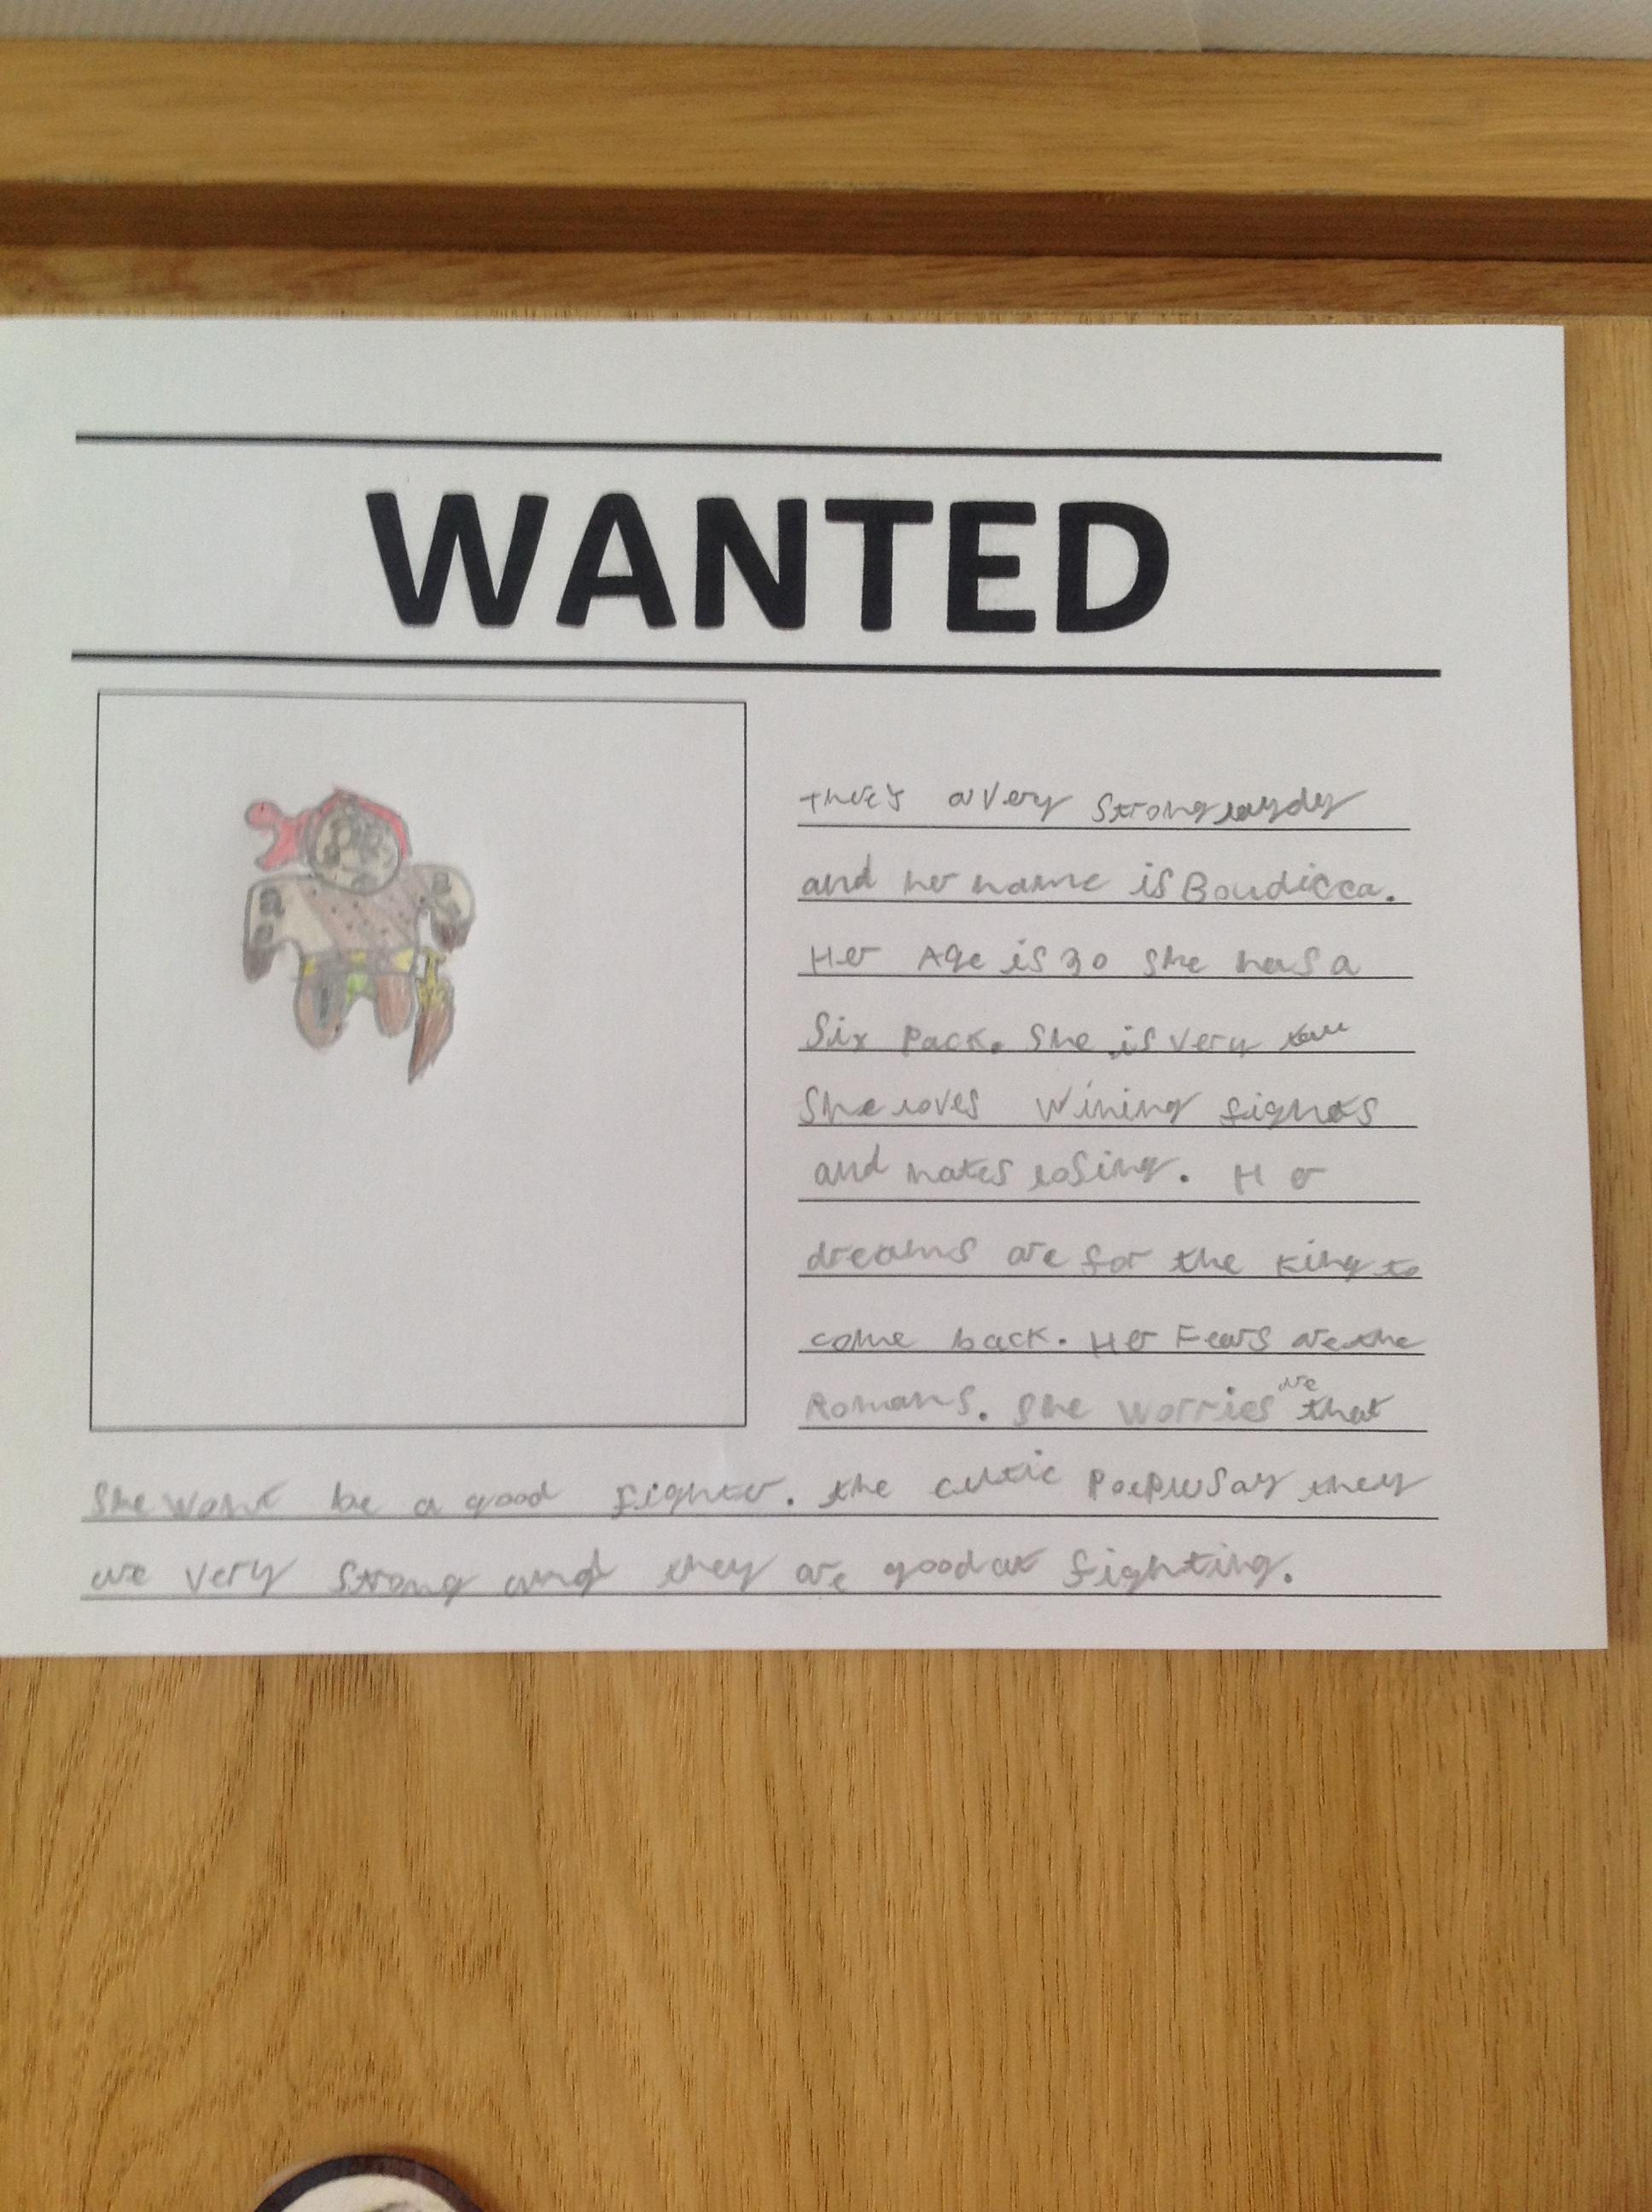 WANTED
ther's a very strong laydy
and her name is Boudicca.
Her Age is 30 she has a
Six Pack. She is very tall
She loves Wining fights
and hates losing. Her
dreams are for the king to
come back. Her Fears are the
Romans. She worries are that
She wont be a good fighter. the celtic PoePle Say they
are very Strong and they are good at fighting.